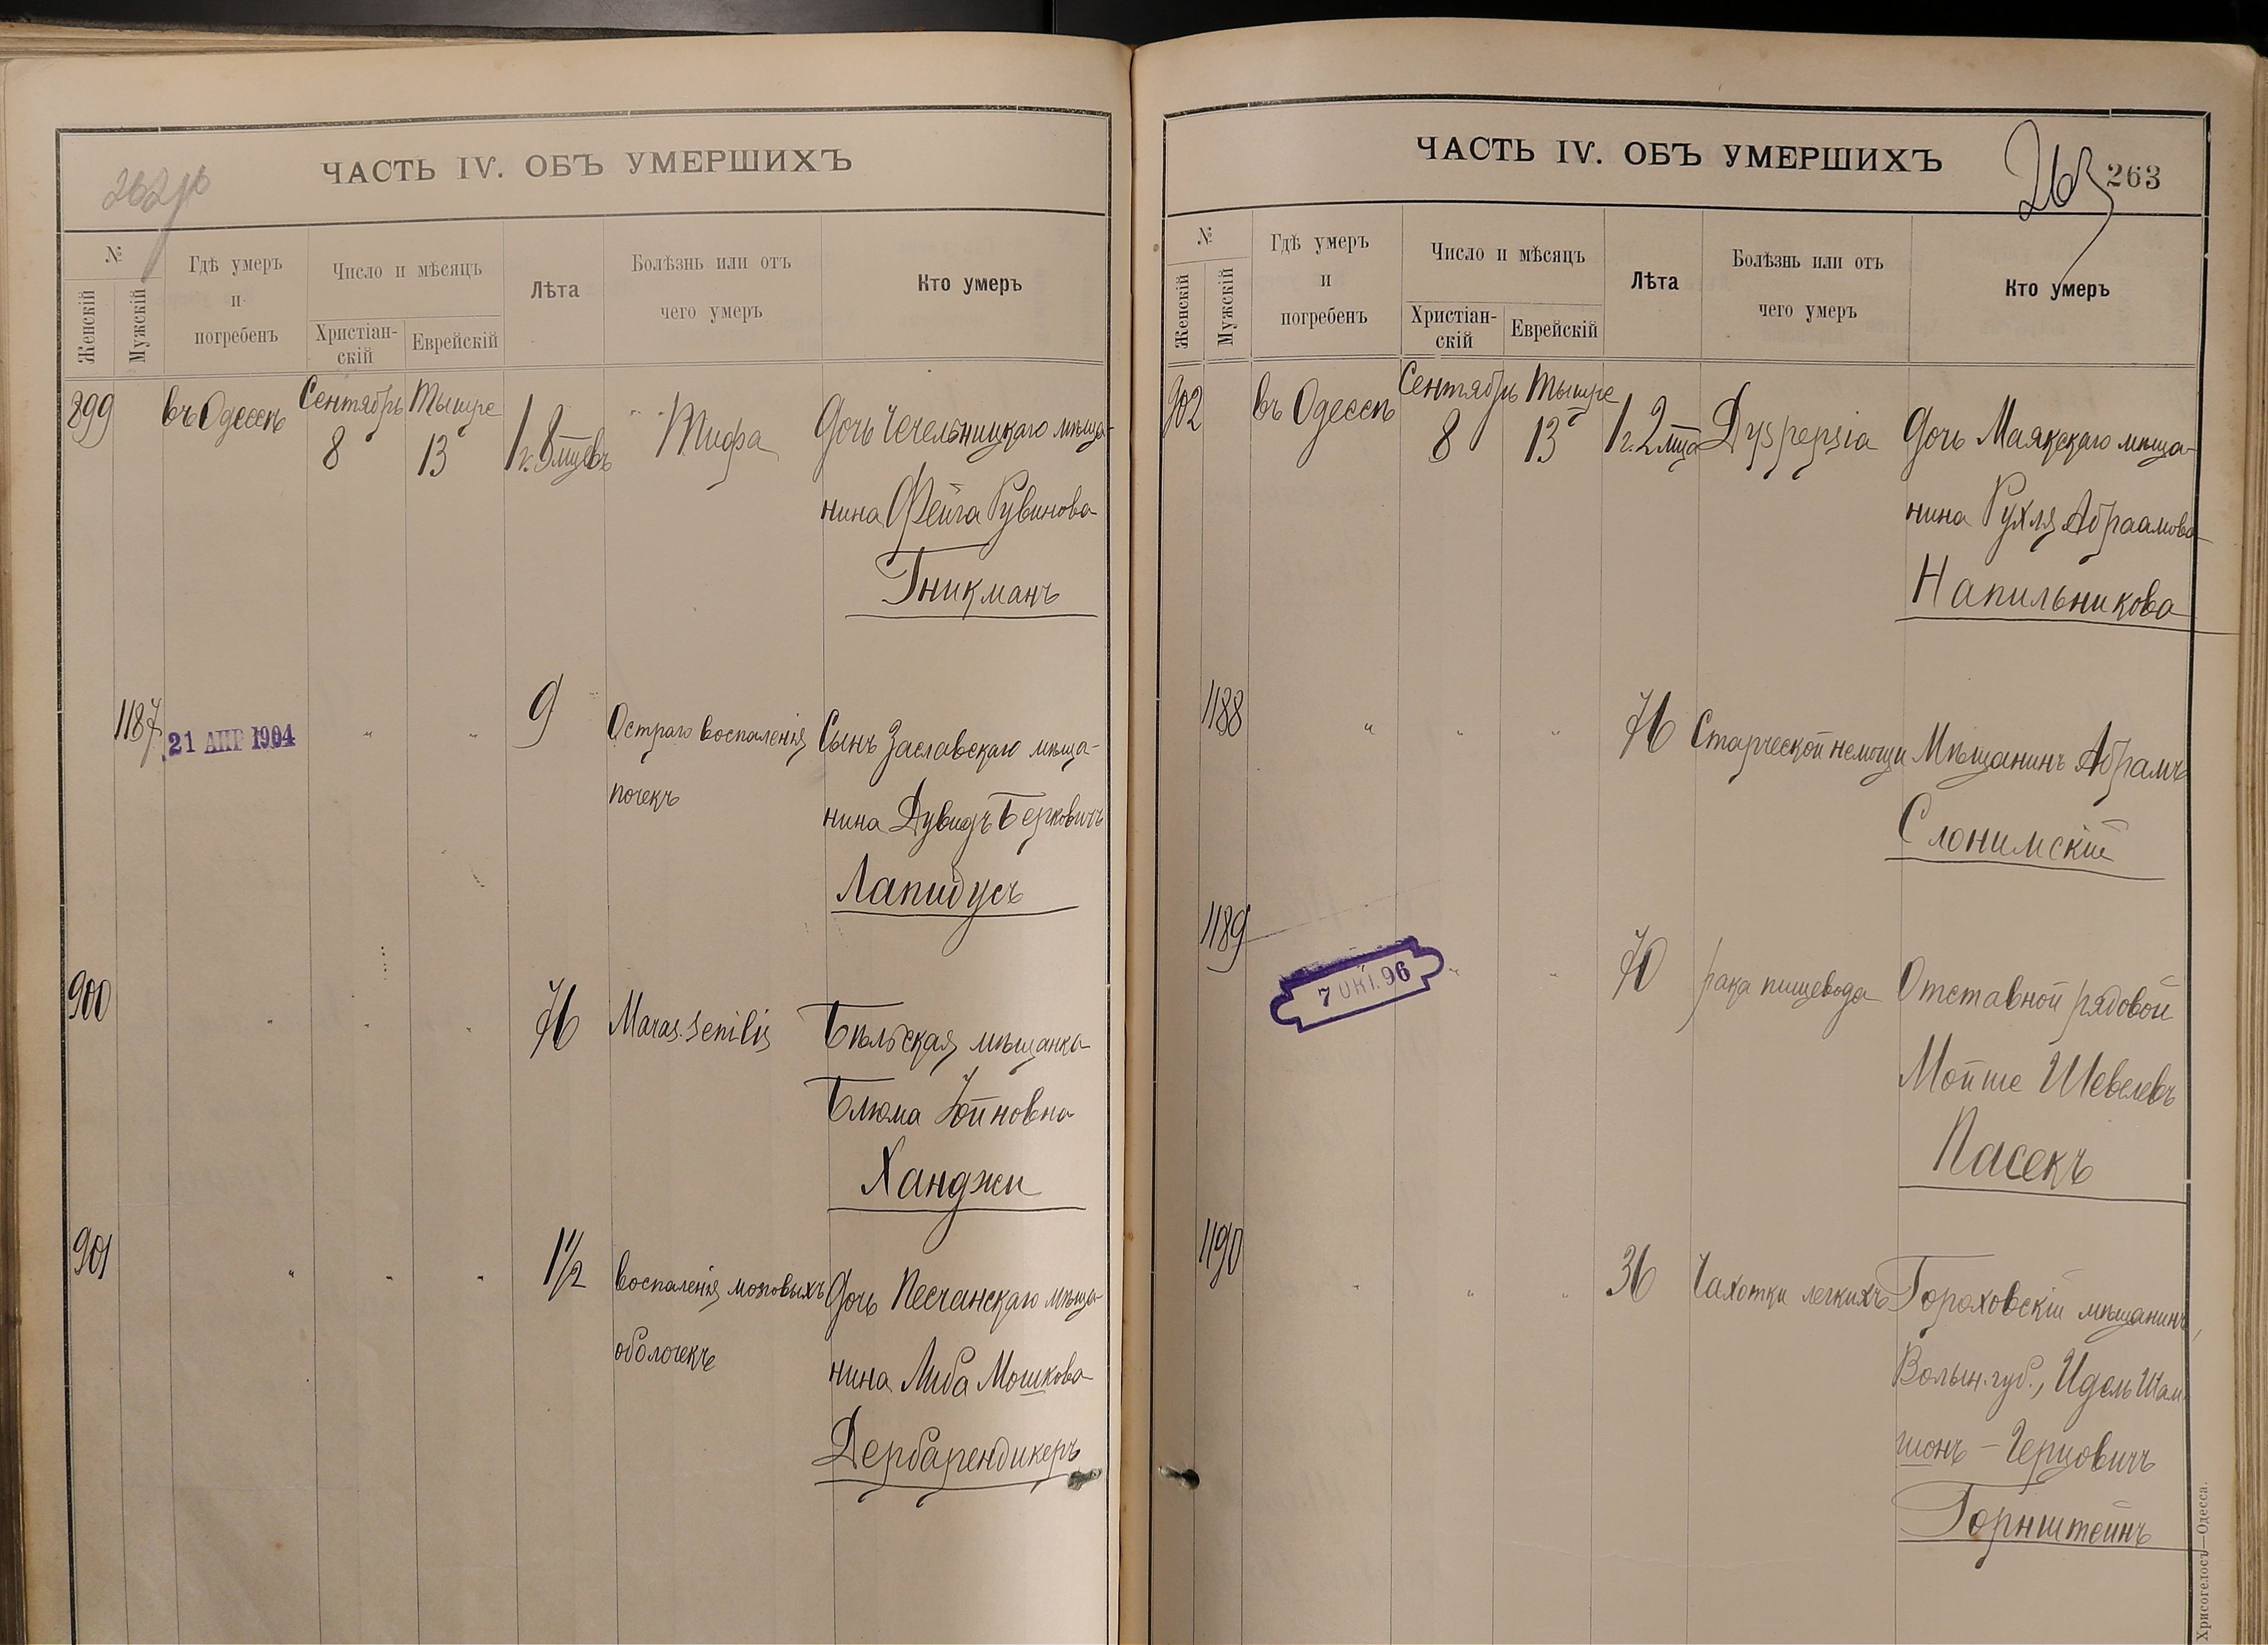 262 об
ЧАСТЬ IV. ОБЪ УМЕРШИХЪ
№
Женскій
Мужскій
Гдѣ умеръ
и
погребенъ
Число и мѣсяцъ
Христіан-
скій
Еврейскій
Лѣта
Болѣзнь или отъ
чего умеръ
Кто умеръ
899 въ Одессѣ Сентябрь 8 Тышре 13 1 г. 8 мцевъ Тифа Дочь Чечельницкаго мѣща-
нина Фейга Рувинова
Гникманъ
1187 21 АПР 1904 " " 9 Остраго воспаленія Сынъ Заславскаго мѣща-
почекъ нина Дувидъ Берковичъ
Лапидусъ
900 " " " 76 Maras. senilis Бѣльская мѣщанка
Блюма Юйновна
Ханджи
901 " " " 1 1/2 воспаленія мозговыхъ Дочь Песчанскаго мѣща-
оболочекъ нина Либа Мошкова
Дербарендикеръ
ЧАСТЬ IV. ОБЪ УМЕРШИХЪ
263 263
№
Женскій
Мужскій
Гдѣ умеръ
и
погребенъ
Число и мѣсяцъ
Христіан-
скій
Еврейскій
Лѣта
Болѣзнь или отъ
чего умеръ
Кто умеръ
902 въ Одессѣ Сентябрь 8 Тышре 13 1 г. 2 мца Dyspepsia Дочь Маякскаго мѣща-
нина Рухля Абраамова
Напильникова
1188 " " " 76 Старческой немощи Мѣщанинъ Абрамъ
Слонимскій
1189 7 ОКТ. 96 " " 70 рака пищевода Отставной рядовой
Мойше Шевелевъ
Пасекъ
1190 " " " 36 Чахотки легкихъ Гороховскій мѣщанинъ,
Волын. губ., Идель Шам-
шонъ - Герцовичъ
Горнштейнъ
Хрисогелосъ—Одесса.